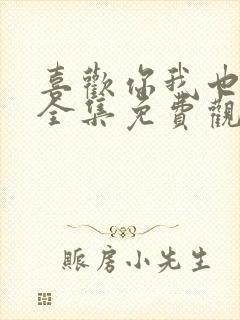 喜歡你我也
全集免費觀
賬房小先生